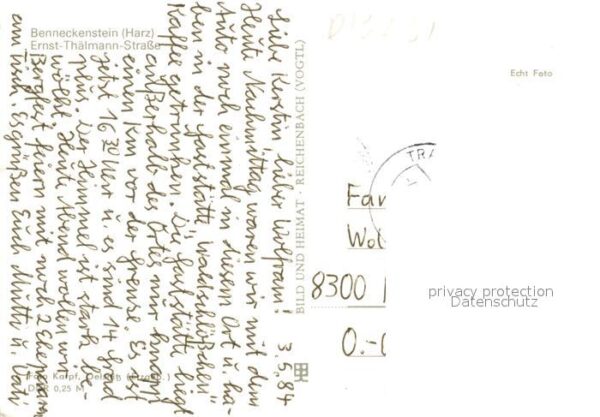 Benneckenstein (Harz)
Ernst-Thälmann-Straße
3.5.84
Liebe Kerstin, lieber Wolfram!
Heute Nachmittag waren wir mit dem
Auto noch einmal in diesem Ort u. ha-
ben in der Gaststätte "Waldschlößchen"
Kaffee getrunken. Die Gaststätte liegt
außerhalb des Ortes nur knapp
einen km vor der Grenze. Es ist
jetzt 16³⁰ Uhr u. es sind 14 Grad
plus. Der Himmel ist stark be-
wölkt. Heute Abend wollen wir
Bergfest feiern mit noch 2 Ehepaaren
am Tisch. Es grüßen Euch Mutti u. Vati
Foto Karpf,
DDR 0,25 M
BILD UND HEIMAT · REICHENBACH (VOGTL)
Echt Foto
TRA
Fam
Wol
8300
O.-
privacy protection
Datenschutz